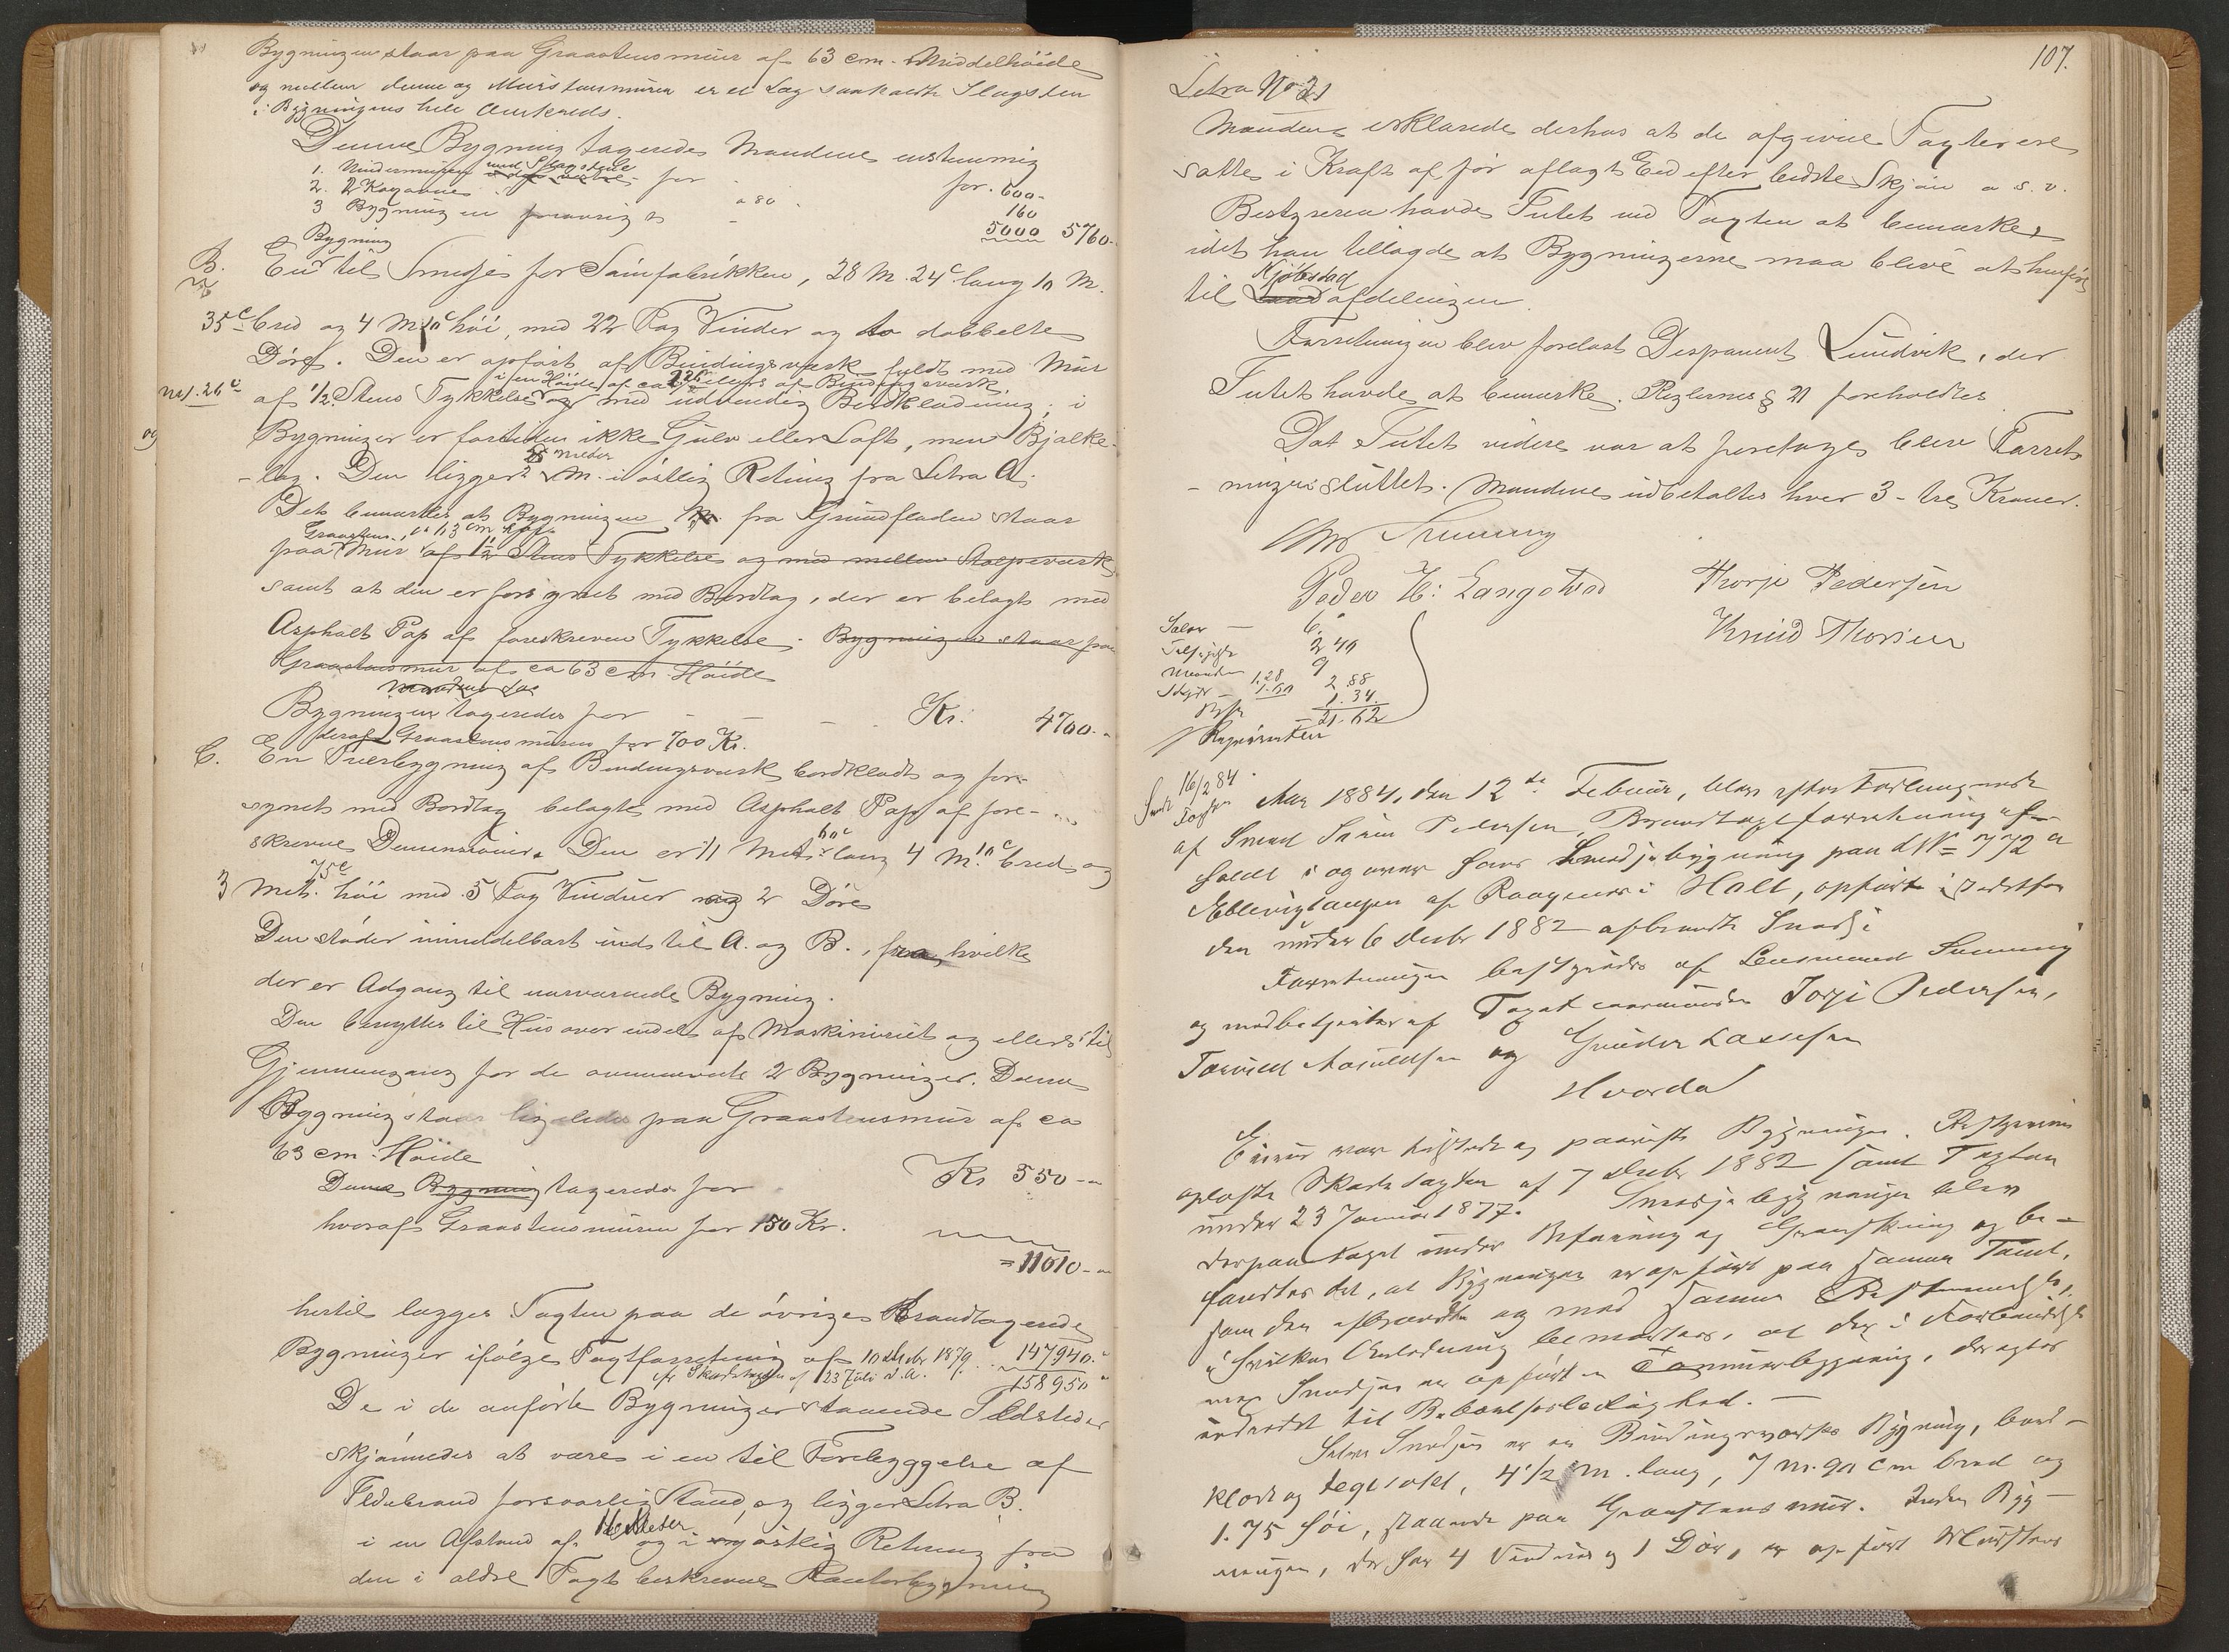 Bygningen staar paa Graastensmuur af 63 cm. Middelhöide
og mellem denne og Murstensmuren er et Lag saakaldte Slagsten
i Bygningens hele
Denne Bygning taxeredes Mændene enstemmig
1. med Slagstene for - for 600-
2. 2 Kaxovne a 80 160
3 Bygningen forövrigt - 5000 5760-
Bygning
B. En til Smedje for Sömfabrikken, 28 M. 24c lang 10 M.
35c bred og 4 M 10c höi, med 22 Fag Vinder og to dobbelte
Döre. Den er opfört af Bindingsværk fyldt med Mur
i en Höide af ca af Bindingsværk
af 1/2 Stens Tykkelse og med udvendig Bordklædning, i
og
Bygningen er fortiden ikke Gulv eller Loft, men Bjælke-
-lag. Den ligger M. i östlig Retning fra Litra A.
Det bemærkes at Bygningen fra Grundfladen staar
Graastens 63 cm
paa Mur af 1 1/2 Stens Tykkelse og med mellem Stolpeværk
samt at den er forsynet med Bordtag, der er belagt med
Asphalt Pap af foreskreven Tykkelse. Bygningen staar paa
Graastensmur af ca 63 cm. Höide
Bygningen taxeredes for - - - Kr. 4700.-
deraf Graastensmuren for 700 Kr.
C. En Tverbygning af Bindingsværk bordklædt og for-
synet med Bordtag belagt med Asphalt Pap af fore-
skrevne Demensioner. Den er 11 Met. 60c lang 4 M. 10c bred og
75c
3 Met. höi med 5 Fag Vinduer og 2 Döre
Den støder umiddelbart ind til A. og B., fra hvilke
der er Adgang til nærværende Bygning.
Den benyttes til Hus over endel af Maskineriet og ellers til
Gjennemgang for de ommeldte 2 Bygninger. Denne
Bygning staar ligeledes paa Graastensmur af ca
63 cm. Höide
Denne Bygning taxeredes for Kr 550--
hvoraf Graastensmuren for 150 Kr.
= 11010--
hertil lægges Taxten paa de övrige Brandtaxerede
Bygninger ifölge Taxtforretning af 10 Decbr 1879.. 147940.-
cfr Skadetaxten af 23 Juli d.A. 158950
De i de anförte Bygninger staaende Ildsteder
skjönnedes at være i en til Forebyggelse af
Ildebrand forsvarlig Stand, og ligger Litra B.
i en Afstand af 11 Meter og i östlig Retning fra
den i ældre Taxt beskrevne Kontorbygning
107.
Litra No 21
Mændene erklærede derhos at de afgivne Taxter ere
satte i Kraft af för aflagt Eed efter bedste Skjön o s. v.
Bestyreren havde Intet ved Taxten at bemærke,
idet han tillagde at Bygningerne maa blive at henföre
Kjöbstad
til Landafdelingen.
Forretningen blev forelæst Disponent Lundvik, der
Intet havde at bemærke. Reglernes § 21 foreholdtes
Da Intet videre var at foretage blev Forret-
- ningen sluttet. Mændene udbetaltes hver 3 - tre Kroner.
Peder H: Langstvod Thorje Pedersen
Knud Thorsen
6.
2 40
9
1.28
1.60 2 88
1.34.
21.62
16/2 84.
Aar 1884, den 12te Februar, blev efter Forlangende
af Smed Sören Pedersen, Brandtaxtforretning af-
holdt i og over hans Smedjebygning paa No 772 a
Eblevigtangen af Raageness i Holt, opfört istedetfor
den under 6 Decbr 1882 afbrændte Smedje
Forretningen bestyredes af Lensmand
og medbetjentes af Taxatsmændene Torje Pedersen,
og Gunder Lassesen
Hvorda
Enhver var tilstede og paaviste Bygningen. Bestyreren
oplæste Skadetaxten af 7 Decbr 1882 samt Taxten
under 23 Januar 1877. Smedjebygningen blev
derpaa taget under Befaring og Granskning og be-
fandtes det, at Bygningen er opfört paa samme Tomt,
som den afbrændte og med samme Bestemmelse,
i hvilken Anledning bemærkes, at der i Forbindelse
med Smedjen er opfört en Tömmerbygning, der agtes
indredet til Beboelsesleilighed. -
Selve Smedjen er en Bindingsværks Bygning, bord-
klædt og teglstækt, 4 1/2 M. lang, 7 m. 90 cm bred og
1.75 höi, staaende paa Graastensmur. Inden Byg-
ningen, der har 4 Vinduer og 1 Dör, er opfört Murstens